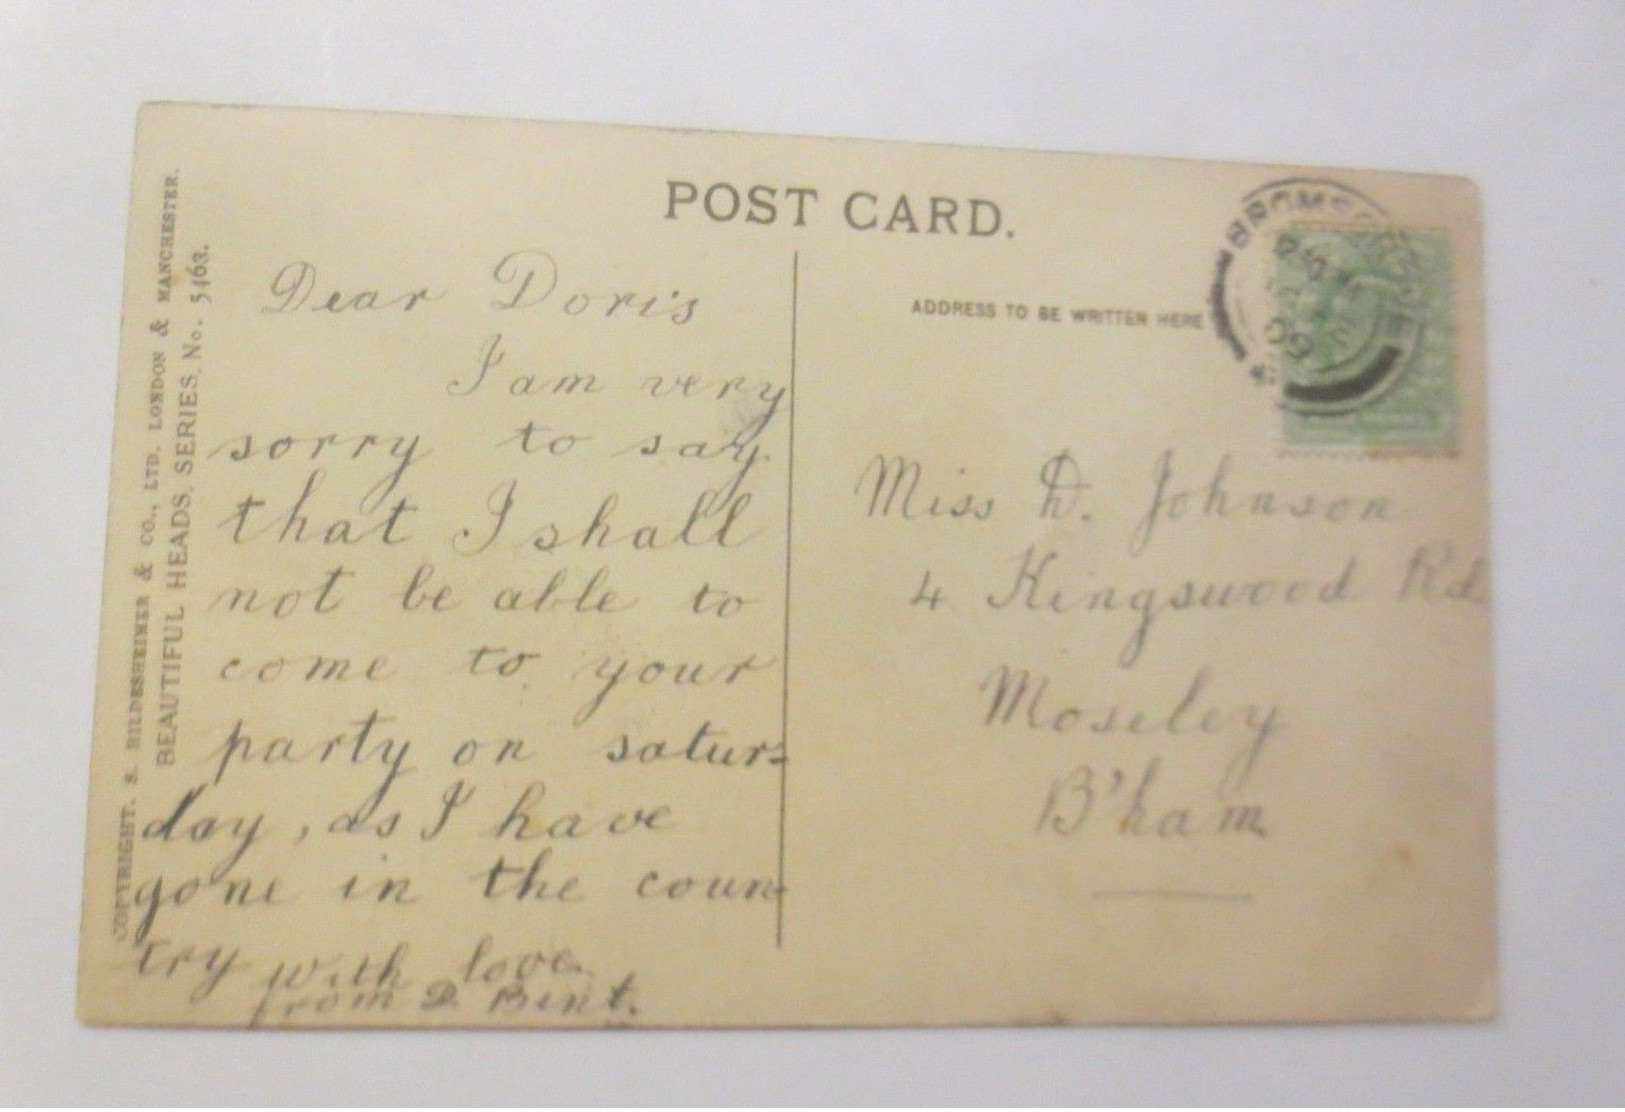 COPYRIGHT. S. HILDESHEIMER & CO., LTD. LONDON & MANCHESTER.
BEAUTIFUL HEADS. SERIES, No. 5463.
POST CARD.
Dear Doris
I am very
sorry to say
that I shall
not be able to
come to your
party on satur=
day, as I have
gone in the coun=
try with love
from D. Bent.
ADDRESS TO BE WRITTEN HERE
BROMSGROVE
Miss D. Johnson
4 Kingswood Rd
Moseley
B'ham